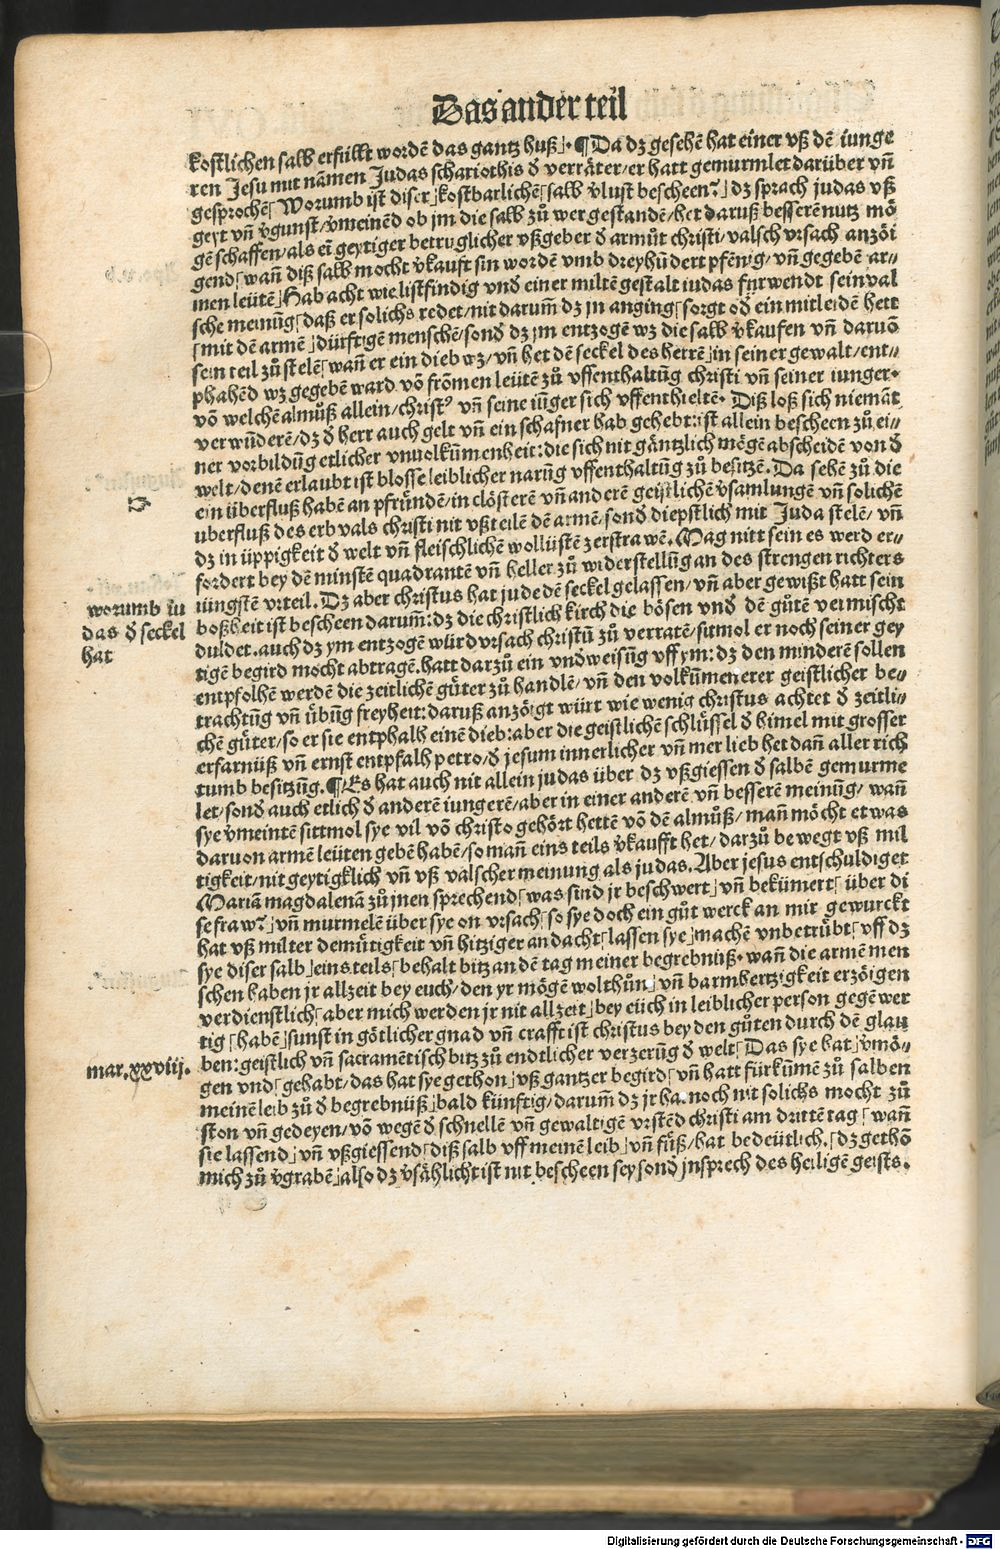 Das ander teil
kostlichen salb erfüllt wordẽ das gantz huß. ¶ Da dz gesehẽ hat einer vß dẽ iunge
ren Jesu mit nãmen Judas schariothis d̕ verräter/er hatt gemurmlet darüber vñ
gesprochẽ Worumb ist diser kostbarlichẽ salb v̕lust bescheen? dz sprach judas vß
geyt vñ v̕gunst/v̕meinẽd ob jm die salb zů wer gestandẽ/het daruß besserẽ nutz mö
gẽ schaffen/als eĩ geytiger betruglicher vßgeber d̕ armůt christi/valsch vrsach anzöi
gend wañ diß salb mocht v̕kauft sin wordẽ vmb dreyhũdert pfẽnig/vñ gegebẽ ar-
men leütẽ Hab acht wie listfindig vnd einer miltẽ gestalt iudas fürwendt sein val
sche meinũg daß er solichs redet/nit darum̃ dz jn anging sorgt od̕ ein mitleidẽ hett
mit dẽ armẽ dürftigẽ menschẽ/sond̕ dz jm entzogẽ wz die salb v̕kaufen vñ daruõ
sein teil zů stelẽ wañ er ein dieb wz/vñ het dẽ seckel des herrẽ in seiner gewalt/ent-
phahẽd wz gegebẽ ward võ frõmen leütẽ zů vffenthaltũg christi vñ seiner iunger.
võ welchẽ almůß allein/christ⁹ vñ seine iũger sich vffenthieltẽ. Diß loß sich niemãt
verwũderẽ/dz d̕ herr auch gelt vñ ein schafner hab gehebt: ist allein bescheen zů ei-
ner vorbildũg etlicher vnuolkũmenheit: die sich nit gäntzlich mögẽ abscheidẽ von d̕
welt/denẽ erlaubt ist blosse leiblicher narũg vffenthaltũg zů besitzẽ. Da sehẽ zů die
ein überfluß habẽ an pfründẽ/in clösterẽ vñ anderẽ geistlichẽ v̕samlungẽ vñ solichẽ
uberfluß des erbvals christi nit vßteilẽ dẽ armẽ/sond̕ diepstlich mit Juda stelẽ/vñ
dz in üppigkeit d̕ welt vñ fleischlichẽ wollüstẽ zerstrawẽ. Mag nitt sein es werd er-
fordert bey dẽ minstẽ quadrantẽ vñ heller zů widerstellũg an des strengen richters
worumb iu
das d̕ seckel
hat
iüngstẽ vrteil. Dz aber christus hat jude dẽ seckel gelassen/vñ aber gewißt hatt sein
boßheit ist bescheen darum̃: dz die christlich kirch die bösen vnd̕ dẽ gůtẽ vermischt
duldet. auch dz ym entzogẽ würd vrsach christũ zů verratẽ/sitmol er noch seiner gey
tigẽ begird mocht abtragẽ. hatt darzů ein vndweisũg vff ym: dz den minderẽ sollen
entpfolhẽ werdẽ die zeitlichẽ güter zů handlẽ/vñ den volkũmenerer geistlicher be-
trachtũg vñ übũg freyheit: daruß anzöigt würt wie wenig christus achtet d̕ zeitli-
chẽ güter/so er sie entphalh einẽ dieb: aber die geistlichẽ schlüssel d̕ himel mit grosser
erfarnüß vñ ernst entpfalh petro/d̕ jesum innerlicher vñ mer lieb het dañ aller rich
tumb besitzũg. ¶ Es hat auch nit allein judas über dz vßgiessen d̕ salbẽ gemurme
let/sond̕ auch etlich d̕ anderẽ iungerẽ/aber in einer anderẽ vñ besserẽ meinũg/wañ
sye v̕meintẽ sittmol sye vil võ christo gehört hettẽ võ dẽ almůß/mañ möcht etwas
daruon armẽ leüten gebẽ habẽ/so mañ eins teils v̕kaufft het/darzů bewegt vß mil
tigkeit/nit geytigklich vñ vß valscher meinung als judas. Aber jesus entschuldiget
Mariã magdalenã zů jnen sprechend was sind jr beschwert vñ bekümert über di
se fraw? vñ murmelẽ über sye on vrsach so sye doch ein gůt werck an mir gewurckt
hat vß milter demütigkeit vñ hitziger andacht lassen sye machẽ vnbetrübt vff dz
sye diser salb eins teils behalt bitz an dẽ tag meiner begrebnüß. wañ die armẽ men
schen haben jr allzeit bey euch/den yr mögẽ wolthůn vñ barmhertzigkeit erzöigen
verdienstlich aber mich werden jr nit allzeit bey eüch in leiblicher person gegẽ wer
tig habẽ sunst in götlicher gnad vñ crafft ist christus bey den gůten durch dẽ glau
mar. xxviij.
ben: geistlich vñ sacramẽtisch bitz zů endtlicher verzerũg d̕ welt Das sye hat v̕mö-
gen vnd gehabt/das hat sye gethon vß gantzer begird vñ hatt fürkũmẽ zů salben
meinẽ leib zů d̕ begrebnüß bald künftig/darum̃ dz jr noch nit solichs mocht zů
ston vñ gedeyen/võ wegẽ d̕ schnellẽ vñ gewaltigẽ vrstẽd christi am drittẽ tag wañ
sie lassend vñ vßgiessend diß salb vff meinẽ leib vñ füß/hat bedeütlich. dz gethõ
mich zů v̕grabẽ also dz v̕sählicht ist nit bescheen sey sond̕ jnsprech des heiligẽ geists.
Digitalisierung gefördert durch die Deutsche Forschungsgemeinschaft - DFG